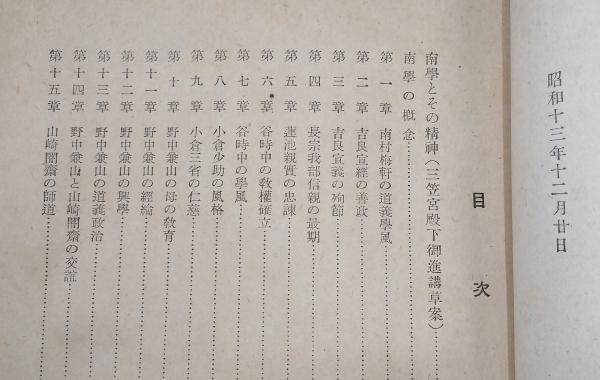 昭和十三年十二月廿日
目次
南學とその精神(三笠宮殿下御進講草案)
南學の概念
第一章 南村梅軒の道義學風
第二章 吉良宣經の善政
第三章 吉良宣義の殉節
第四章 長宗我部信親の最期
第五章 蓮池親實の忠諫
第六章 谷時中の敎權確立
第七章 谷時中の學風
第八章 小倉少助の風格
第九章 小倉三省の仁慈
第十章 野中兼山の母の敎育
第十一章 野中兼山の經綸
第十二章 野中兼山の興學
第十三章 野中兼山の道義政治
第十四章 野中兼山と山崎闇齋の交誼
第十五章 山崎闇齋の師道